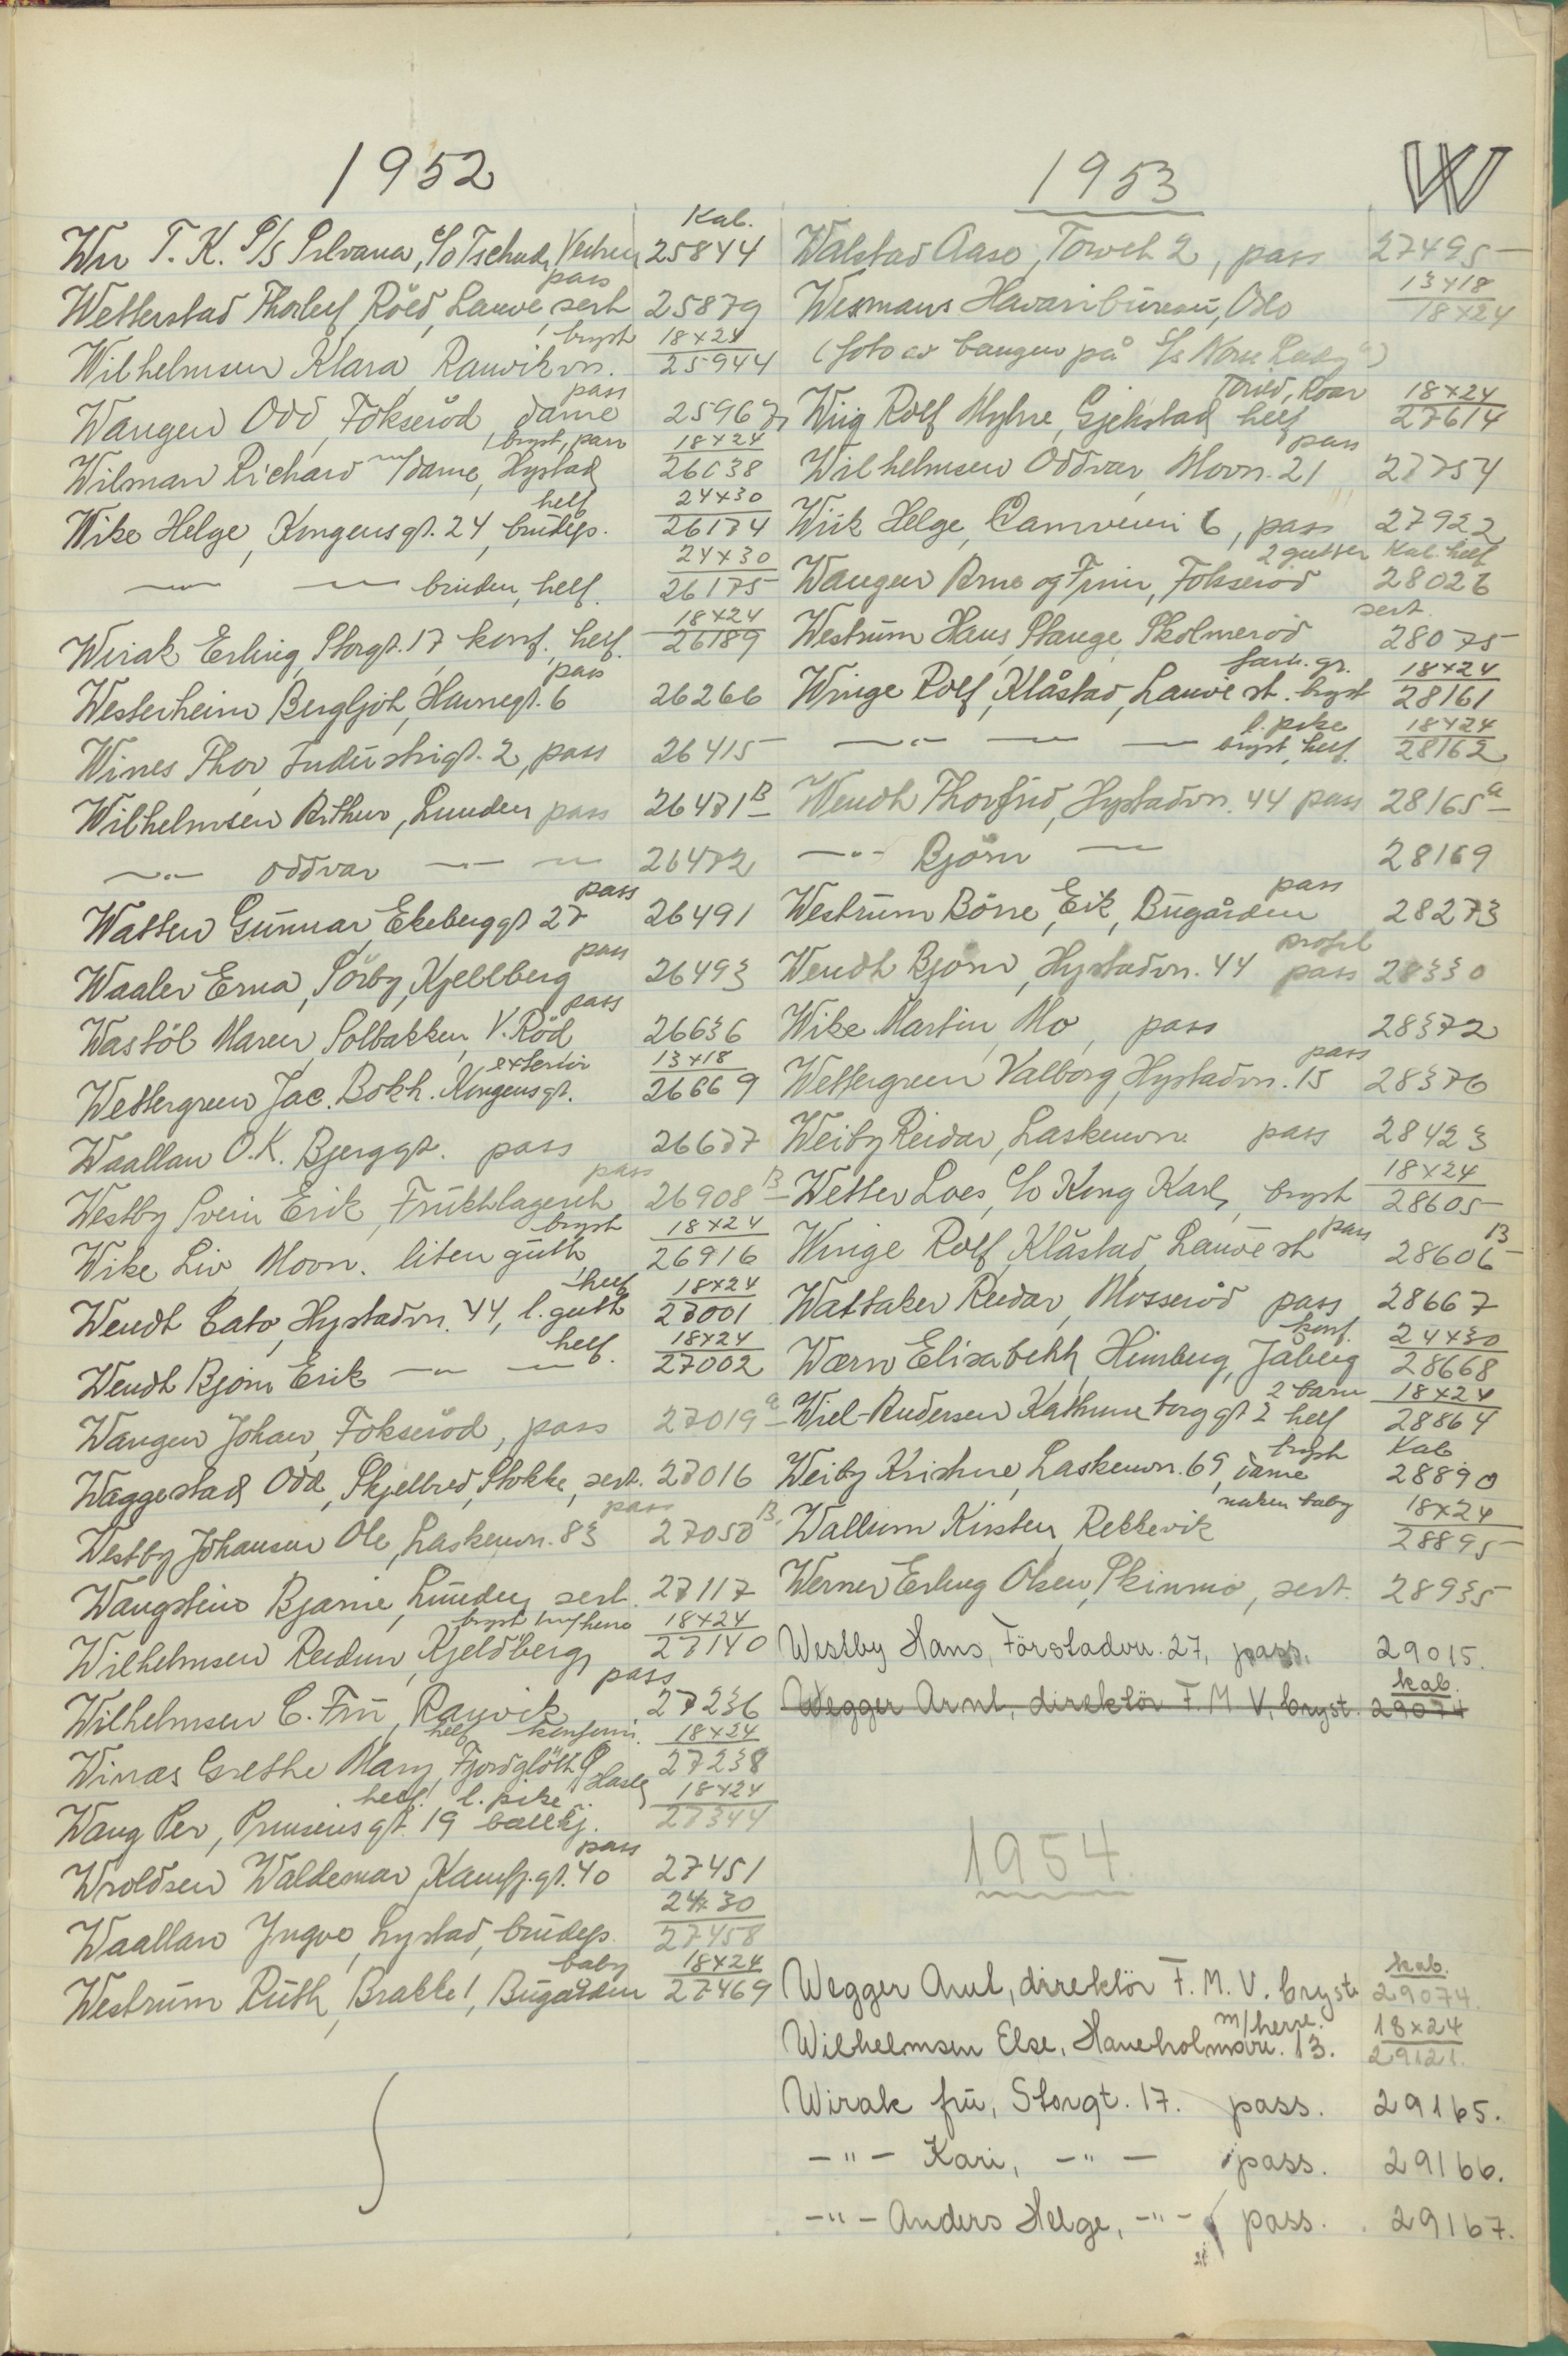 1952
Kab.
Wu T. K. S/S Silvana, c/o Tschudi, 25844
pass
Wetterstad Thorleif, Röed, Lauve, sert 25879
bryst 18x24
Wilhelmsen Klara, Ranvikvn. 25944
pass
Wangen Odd, Fokseröd, dame 25967
bryst, pass 18x24
Wilman Richard m/dame, Hystad 26038
helf 24x30
Wike Helge, Kongensgt. 24, brudep. 26174
24x30
—"— —"— bruden, helf. 26175
18x24
Wirak Erling, Storgt. 17 konf. helf. 26189
pass
Westerheim Bergljot, Havnegt. 6 26266
Wines Thor, Industrigt. 2, pass 26415
Wilhelmsen Arthur, Lunden pass 26471 B
—"— Oddvar —"— — 26472
pass
Watten Gunnar, Ekeberggt 27 26491
pass
Waaler Erna, Sörby, Kjellberg 26493
pass
Wastöl Maren, Solbakken, V. Röd 26636
exteriör 13x18
Wettergreen Jac. Bokh. Kongensgt. 26669
Waallan O.K. Bjerggt. pass 26677
pass
Westby Svein Erik, Fruktlageret 26908 B
bryst 18x24
Wike Liv, Movn. liten gutt 26916
helf 18x24
Wendt Cato, Hystadvn. 44, l. gutt 27001
helf. 18x24
Wendt Bjørn Erik —"— — 27002
Wangen Johan, Fokseröd, pass 27019 a
Waggestad Odd, Skjelbred, Stokke, sert. 27016
pass
Westby Johansen Ole, Laskenvn. 83 27050 B
Wangstens Bjarne, Lunden, sert. 27117
bryst m/herre 18x24
Wilhelmsen Reidun, Kjeldberg 27140
pass
Wilhelmsen C. Fru, Ranvik 27236
helf konfirm. 18x24
Winæs Grethe Mary, Fjordglött, Hasle 27238
helf. l. pike 18x24
Wang Per, Prinsensgt. 19 ballkj. 27344
pass
Wroldsen Waldemar, Kamfj.gt. 40 27451
24x30
Waallan Yngve, Lystad, brudep. 27458
baby 18x24
Westrum Ruth, Brakke 1, Bugården 27469
1953
W
Walstad Aase, Torvet 2, pass 27495
13x18
Wesmans Havaribureau, Oslo 18x24
(foto av baugen på S/S "Norse Lady")
Torild, Roar 18x24
Wiig Rolf Myhre, Gjekstad helf 27614
pass
Wilhelmsen Oddvar, Movn. 21 27754
Wiik Helge, Damveien 6, pass 27922
2 gutter Kab. helf
Wangen Arne og Finn, Fokseröd 28026
sert.
Westrum Hans, Stange, Skolmeröd 28075
fam. gr. 18x24
Winge Rolf, Klåstad, Lauve st. bryst 28161
l. pike 18x24
—"— — — bryst, helf. 28162
Wendt Thorfrid, Hystadvn. 44 pass 28165 a
—"— Björn — 28169
pass
Westrum Börre, Eik, Bugården 28273
profil
Wendt Bjørn, Hystadvn. 44 pass 28330
Wike Martin, Mo, pass 28372
pass
Wettergreen Valborg, Hystadvn. 15 28376
Weiby Reidar, Laskenvn. pass 28423
18x24
Wetter Loes, c/o Kong Karl, bryst 28605
pass
Winge Rolf, Klåstad, Lauve st 28606 B
Wattaker Reidar, Mosseröd pass 28667
konf. 24x30
Wærn Elisabeth, Himberg, Jåberg 28668
2 barn 18x24
Wiel-Andersen Kathrineborggt 2 helf 28864
bryst Kab
Weiby Kristine, Laskenvn. 69, dame 28890
naken baby 18x24
Wallum Kirsten, Rekkevik 28895
Werner Erling Olsen, Skinmo, sert. 28935
Westby Hans, Förstadvn. 27, pass. 29015.
kab.
Wegger Arnt, direktör F. M. V. bryst. 29074
1954.
kab.
Wegger Arnt, direktör F. M. V. bryst. 29074.
m/herre. 18x24
Wilhelmsen Else, Haneholmvn. 13. 29121.
Wirak fru, Storgt. 17. pass. 29165.
—"— Kari, —"— pass. 29166.
—"— Anders Helge, —"— pass. 29167.